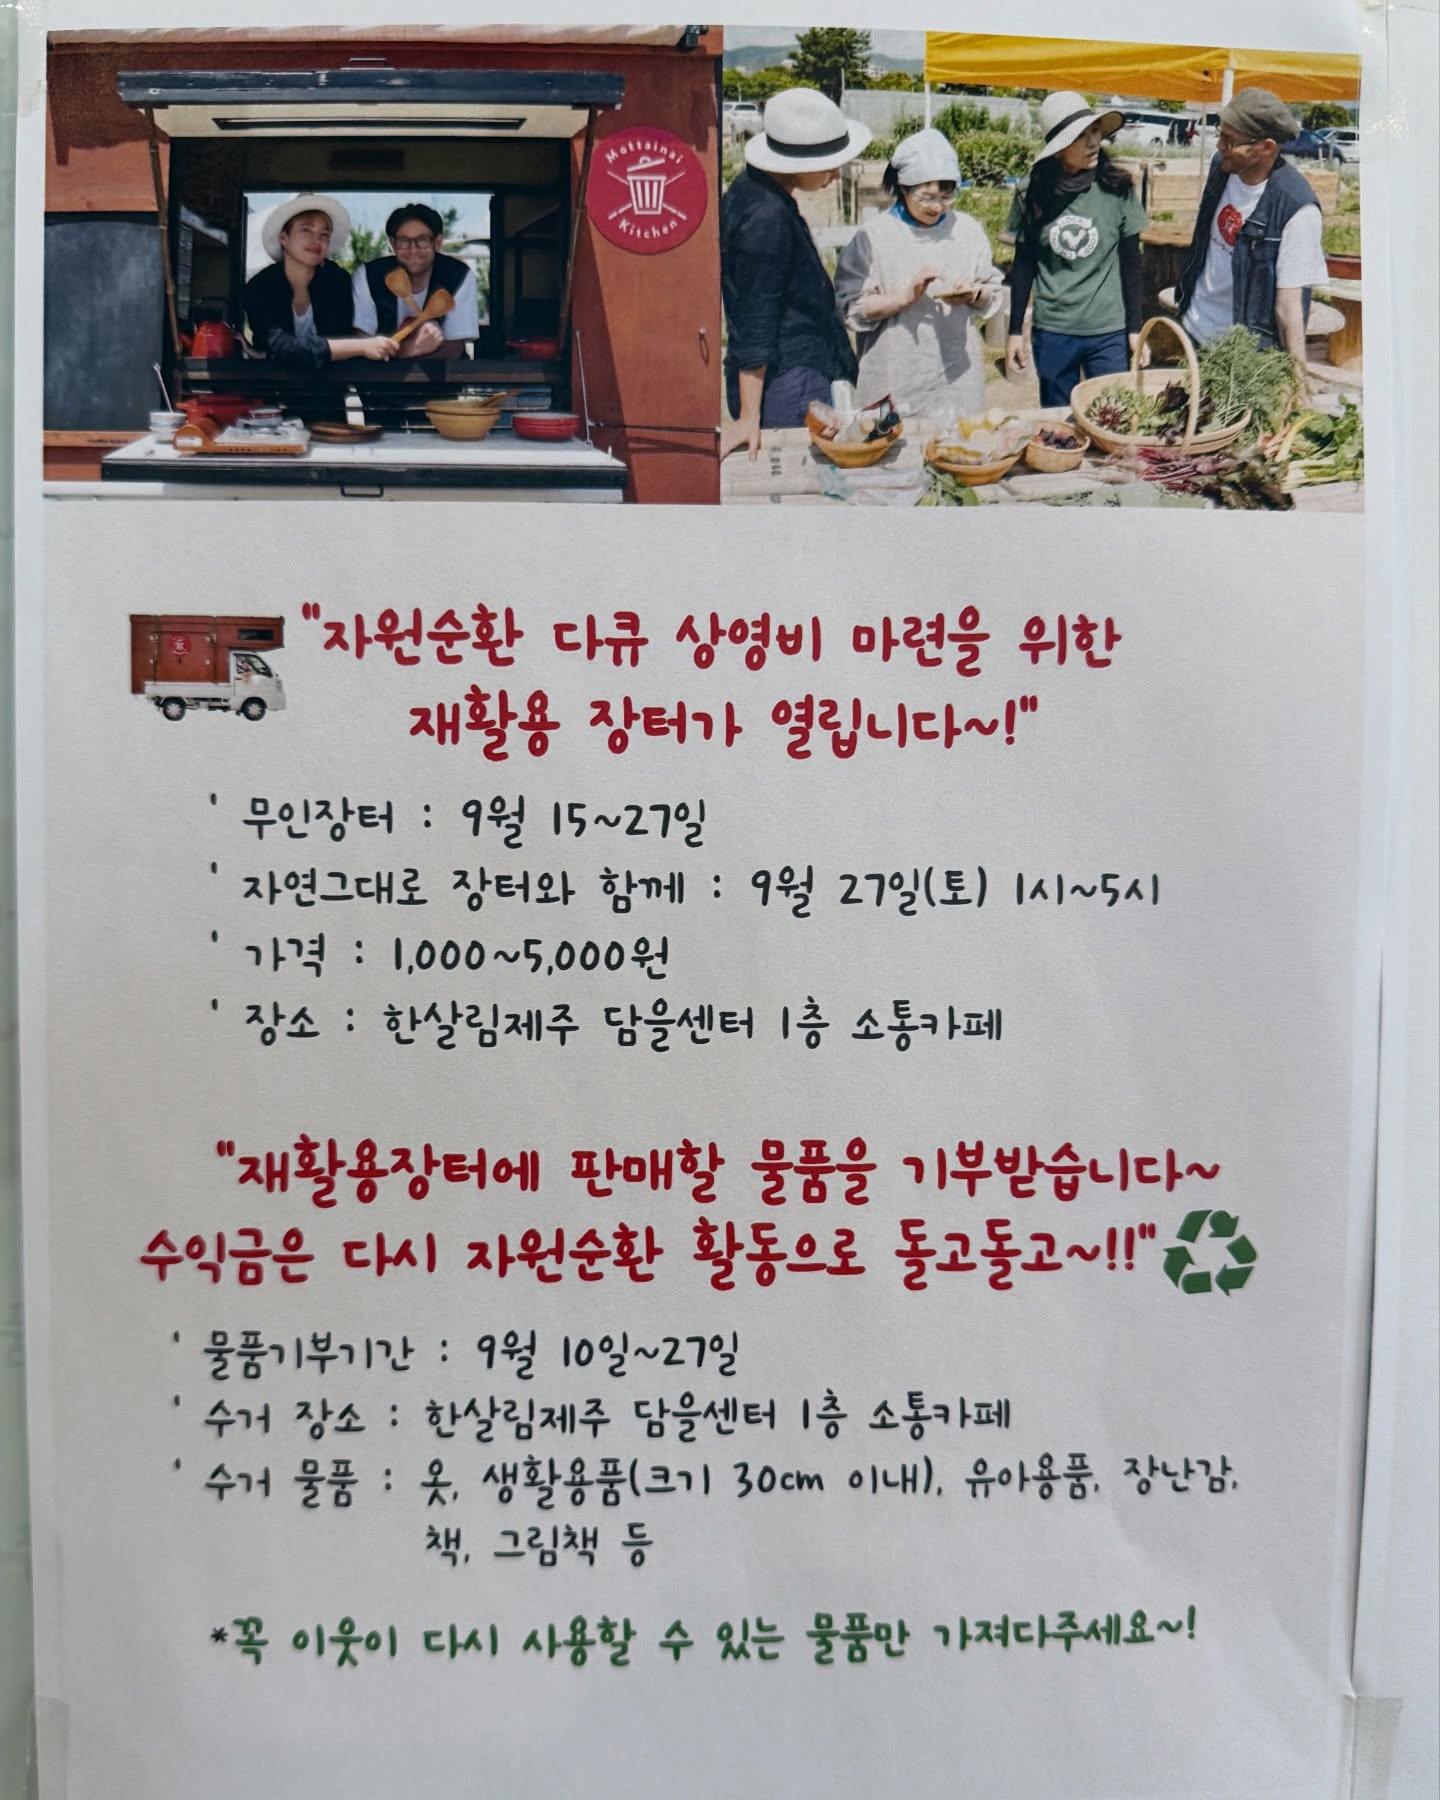 Mottainai
Kitchen
"자원순환 다큐 상영비 마련을 위한
재활용 장터가 열립니다~!"
' 무인장터 : 9월 15~27일
' 자연그대로 장터와 함께 : 9월 27일(토) 1시~5시
' 가격 : 1,000~5,000원
' 장소 : 한살림제주 담을센터 1층 소통카페
"재활용장터에 판매할 물품을 기부받습니다~
수익금은 다시 자원순환 활동으로 돌고돌고~!!"
' 물품기부기간 : 9월 10일~27일
' 수거 장소 : 한살림제주 담을센터 1층 소통카페
' 수거 물품 : 옷, 생활용품(크기 30cm 이내), 유아용품, 장난감,
책, 그림책 등
*꼭 이웃이 다시 사용할 수 있는 물품만 가져다주세요~!